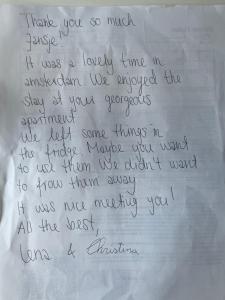 Thank you so much
Jansje!
It was a lovely time in
amsterdam. We enjoyed the
stay at your georgeous
apartment
We left some things in
the fridge. Maybe you want
to use them. We didn't want
to frow them away
It was nice meeting you!
All the best,
Lena & Christina